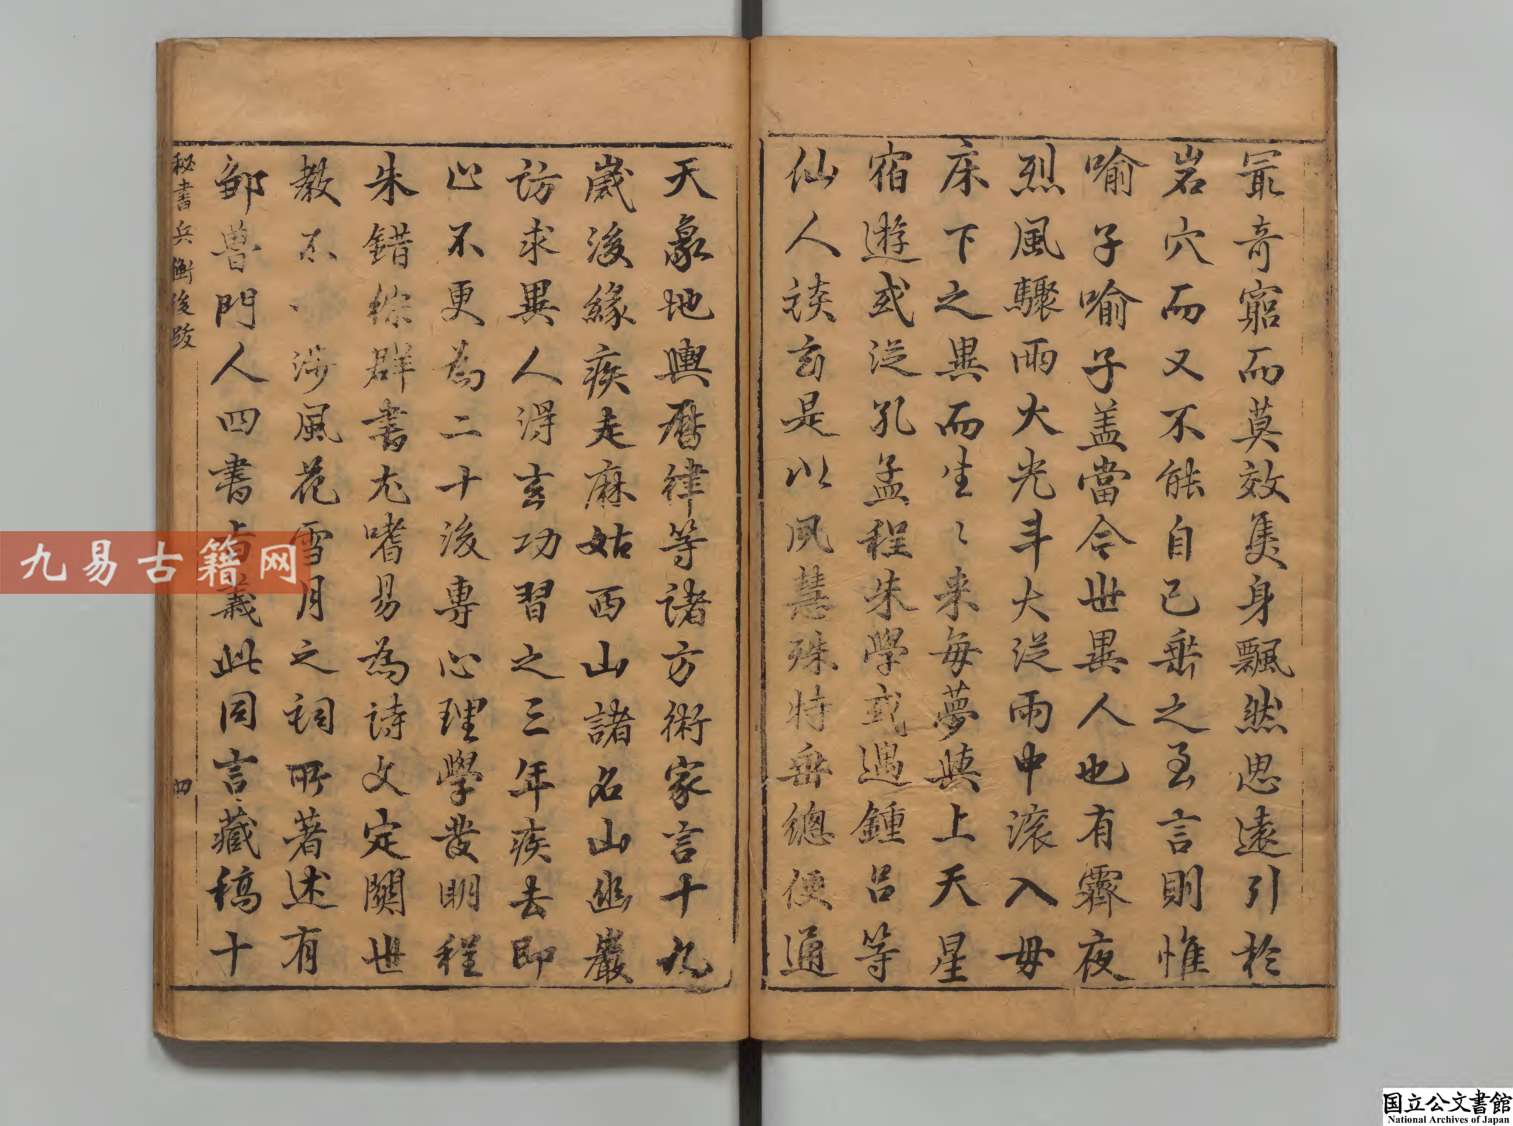 冣奇窮而莫效隻身飄然思遠引於
岩穴而又不能自已垂之至言則惟
喻子喻子盖當今世異人也有霽夜
烈風驟雨大光斗大從雨中滚入毋
床下之異而生〻來每夢與上天星
宿遊或從孔孟程朱學或遇鍾呂等
仙人談玄是以夙慧殊特毎總便通
天象地輿曆律等諸方術家言十九
歲後緣疾走麻姑西山諸名山幽巖
訪求異人得玄功習之三年疾去即
心不更為二十後專心理學發明程
朱錯綜群書尤嗜易為詩文定關世
教不涉風花雪月之詞所著述有
鄒魯門人四書占義此同言藏稿十
秘書兵衡後跋
四
九易古籍网
国立公文書館
National Archives of Japan